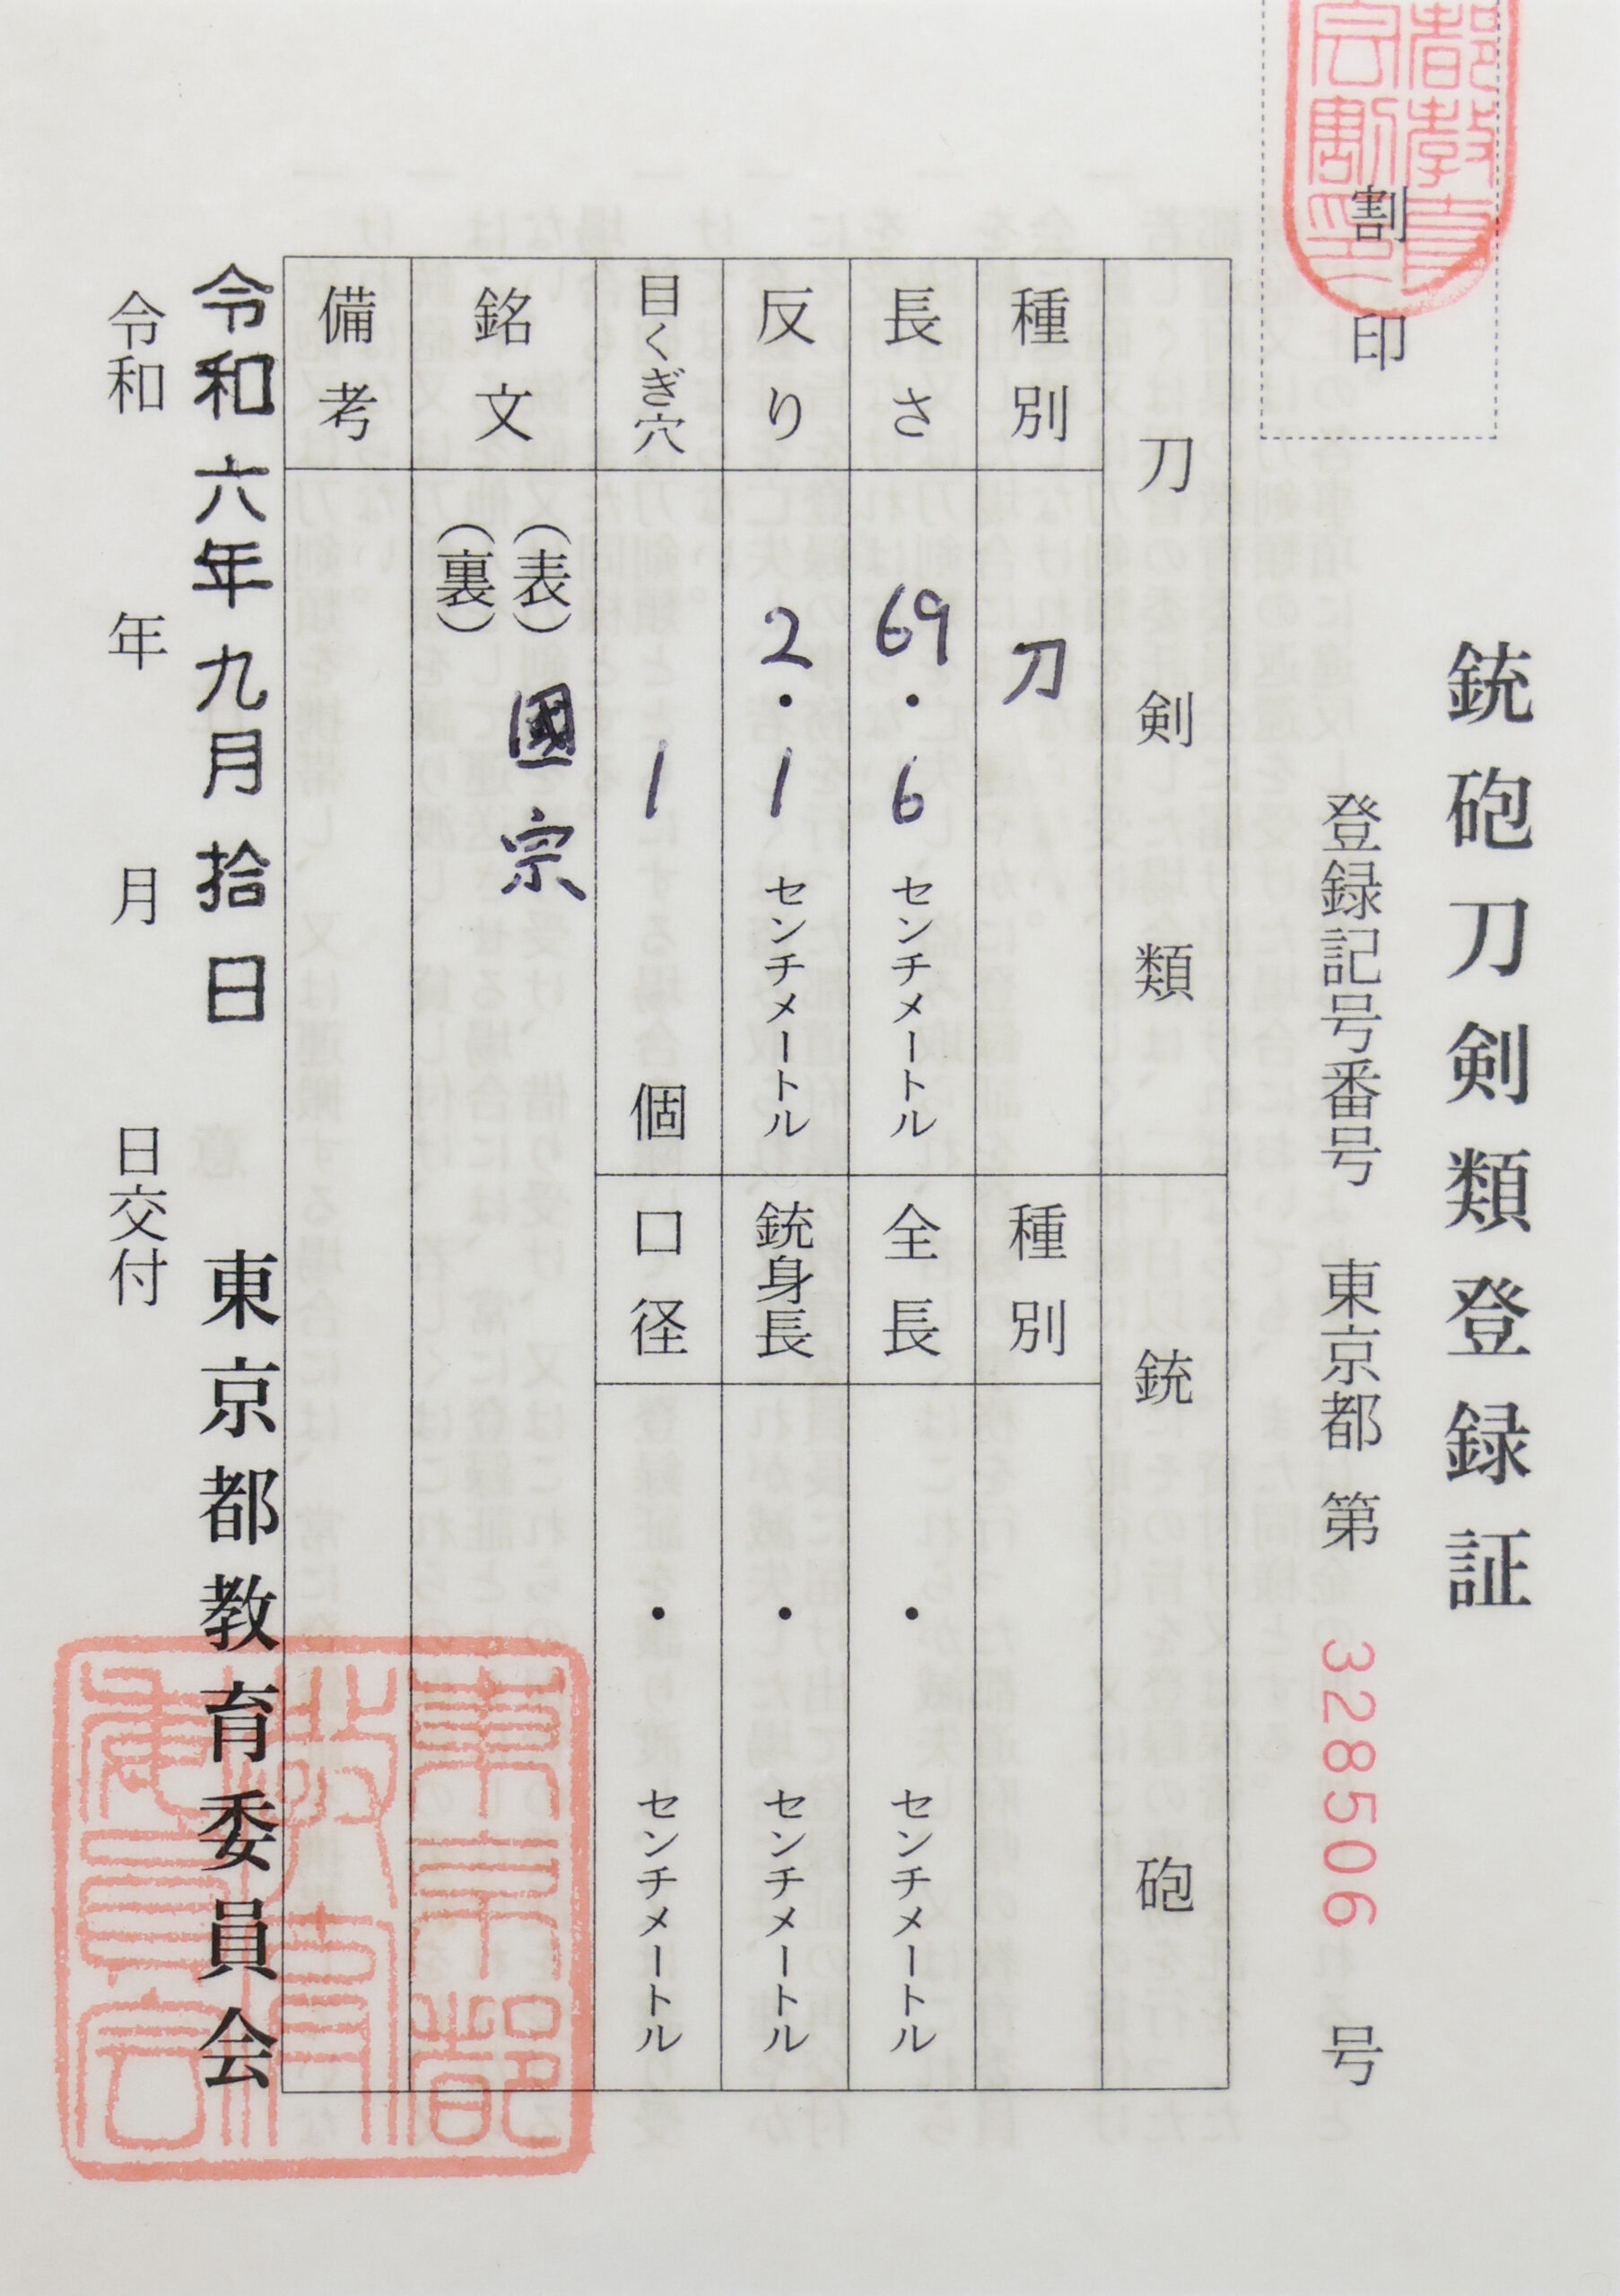 銃砲刀剣類登録証
登録記号番号 東京都 第 328506 号
割印
刀剣類
銃砲
種別 刀
種別
長さ 69.6 センチメートル
全長 ・ センチメートル
反り 2.1 センチメートル
銃身長 ・ センチメートル
目くぎ穴 1 個
口径 ・ センチメートル
銘文 (表) 國宗
(裏)
備考
令和六年九月拾日
東京都教育委員会
令和 年 月 日交付